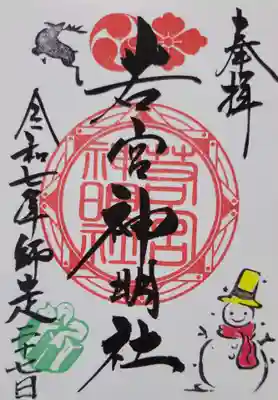 奉拝
若宮神明社
若宮
神明社
令和七年師走日